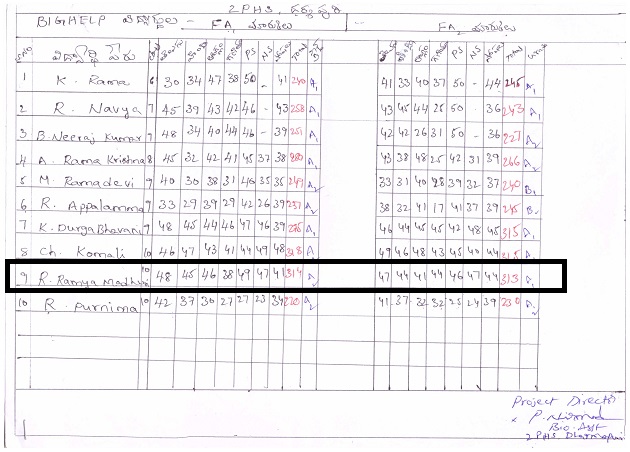 ZPHS, ధర్మపురి
BIGHELP విద్యార్థులు - FA మార్కులు - FA మార్కులు
విద్యార్థి పేరు PS N.S Total PS N.S Total
1 K. Rama 6 30 34 47 38 50 - 41 240 A1 41 33 40 37 50 - 44 245 A1
2 R. Navya 7 45 39 43 42 46 - 43 258 A1 43 45 44 26 50 - 36 243 A1
3 B. Neeraj Kumar 7 48 34 40 44 46 - 39 251 A1 42 42 26 31 50 - 36 227 A2
4 A. Rama Krishna 8 45 32 42 41 45 37 38 280 A1 43 38 48 25 42 31 39 266 A2
5 M. Ramadevi 9 40 30 38 31 40 35 35 249 A2 33 31 40 28 39 32 37 240 B1
6 R. Appalamma 9 33 29 39 29 42 26 39 237 A2 38 32 41 17 41 37 39 245 B1
7 K. Durga Bhavani 9 48 45 44 46 47 46 39 A1 46 44 45 45 42 48 45 315 A1
8 Ch. Komali 10 46 47 43 41 44 49 48 318 A1 49 46 48 43 45 40 44 315 A1
9 R. Ramya Madhuri 10 48 45 46 38 49 47 41 314 A1 47 44 41 44 46 47 44 313 A1
10 R. Purnima 10 42 37 30 27 27 23 34 220 A2 41 37 32 32 25 24 39 230 A2
Project Director
Bio. Asst
ZPHS Dharmapuri